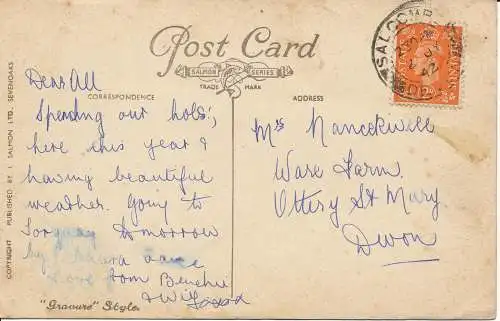 Post Card
SALMON SERIES
TRADE MARK
CORRESPONDENCE
ADDRESS
Dear All
Spending our hols:,
here this year &
having beautiful
weather. Going to
Torquay tomorrow
by
Love from
&
"Gravure" Style
Mrs Nancekivell
Ware Farm.
Ottery St Mary.
Devon
SALCOMBE
COPYRIGHT PUBLISHED BY J. SALMON LTD., SEVENOAKS